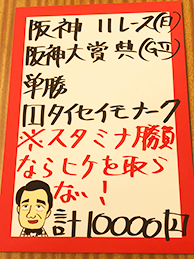 阪神 11レース(日)
阪神大賞典(GII)
単勝
11タイセイモナーク
※スタミナ勝負
ならヒケを取ら
ない!
計10000円